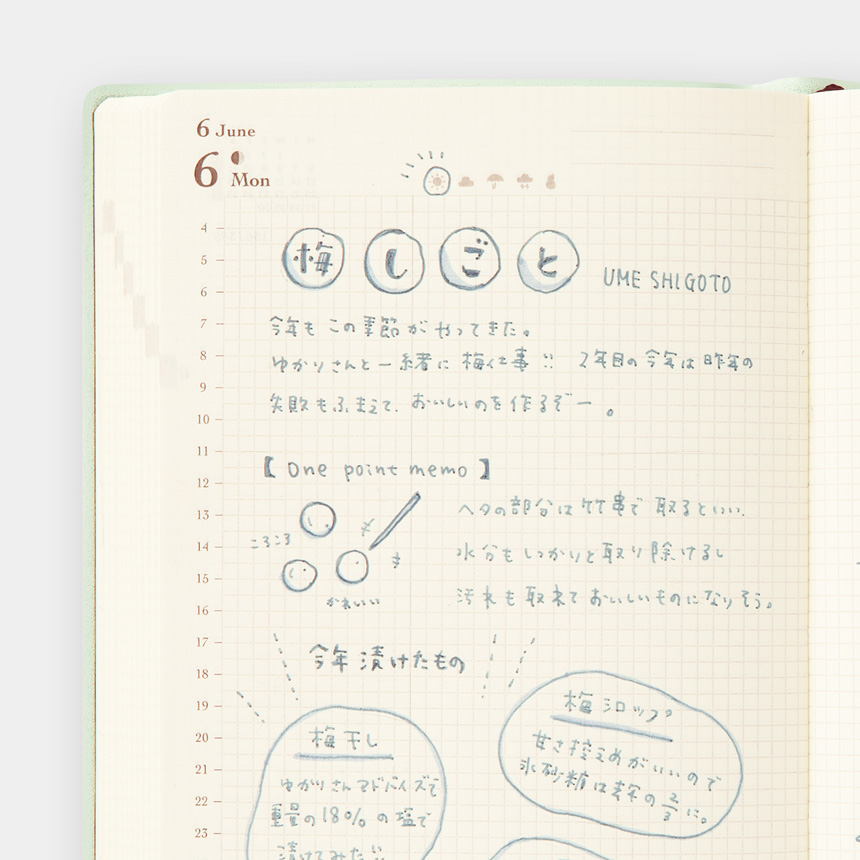 6 June
6 Mon
梅しごと
UME SHIGOTO
今年も この季節が やってきた。
ゆかりさんと一緒に 梅仕事!! 2年目の今年は昨年の
失敗もふまえて、おいしいのを作るぞー。
【 One point memo 】
ヘタの部分は竹串で 取るといい。
ころころ
水分も しっかりと取り除けるし
汚れも 取れて おいしいものになりそう。
かわいい
今年 漬けたもの
梅シロップ
甘さ控えめがいいので
氷砂糖は実の2/3に。
梅干し
ゆかりさんアドバイズで
重量の18%の塩で
漬けてみた!!
4
5
6
7
8
9
10
11
12
13
14
15
16
17
18
19
20
21
22
23